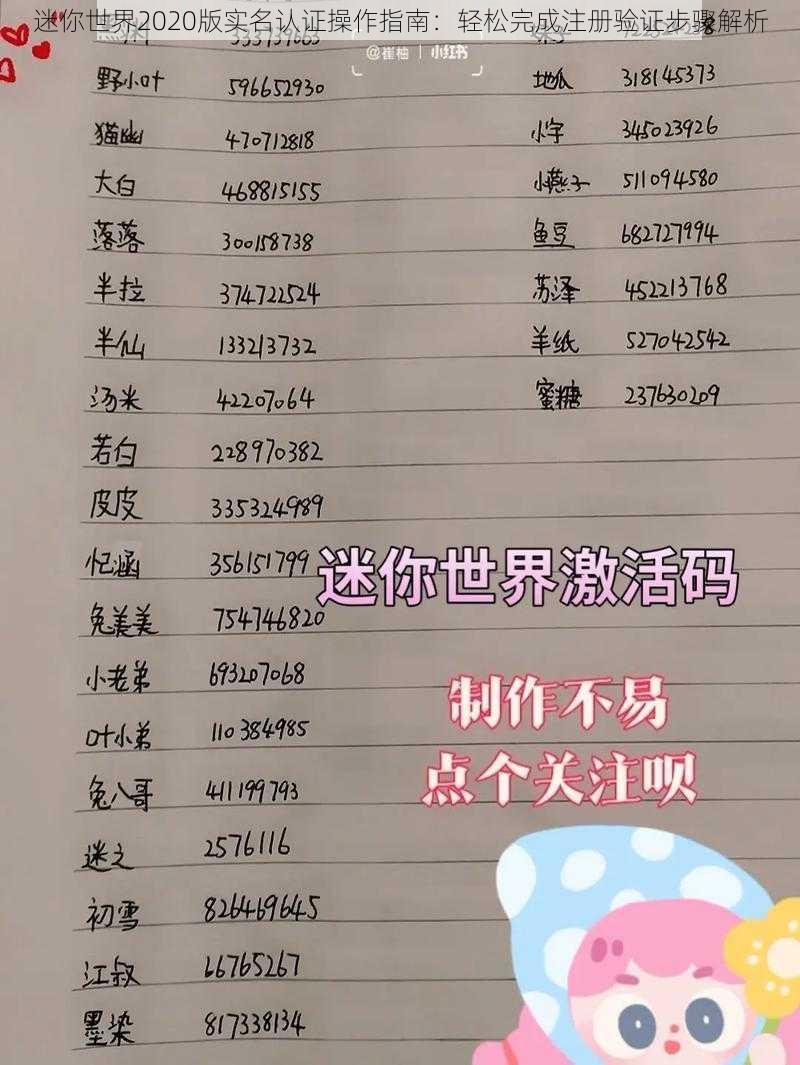 迷你世界2020版实名认证操作指南：轻松完成注册验证步骤解析
@崔柚 | 小红书
野小叶 596652930
猫幽 470712818
大白 468815155
落落 300158738
半拉 374722524
半仙 133213732
汤米 42207064
若白 228970382
皮皮 335324989
忆涵 356151799
兔美美 754746820
小老弟 693207068
叶小弟 110384985
兔八哥 411199793
迷之 2576116
初雪 826469645
江叔 66765267
墨染 817338134
地瓜 318145373
小字 345023926
小燕子 511094580
鱼豆 682727994
苏泽 452213768
羊纸 527042542
蜜糖 237630209
迷你世界激活码
制作不易
点个关注呗